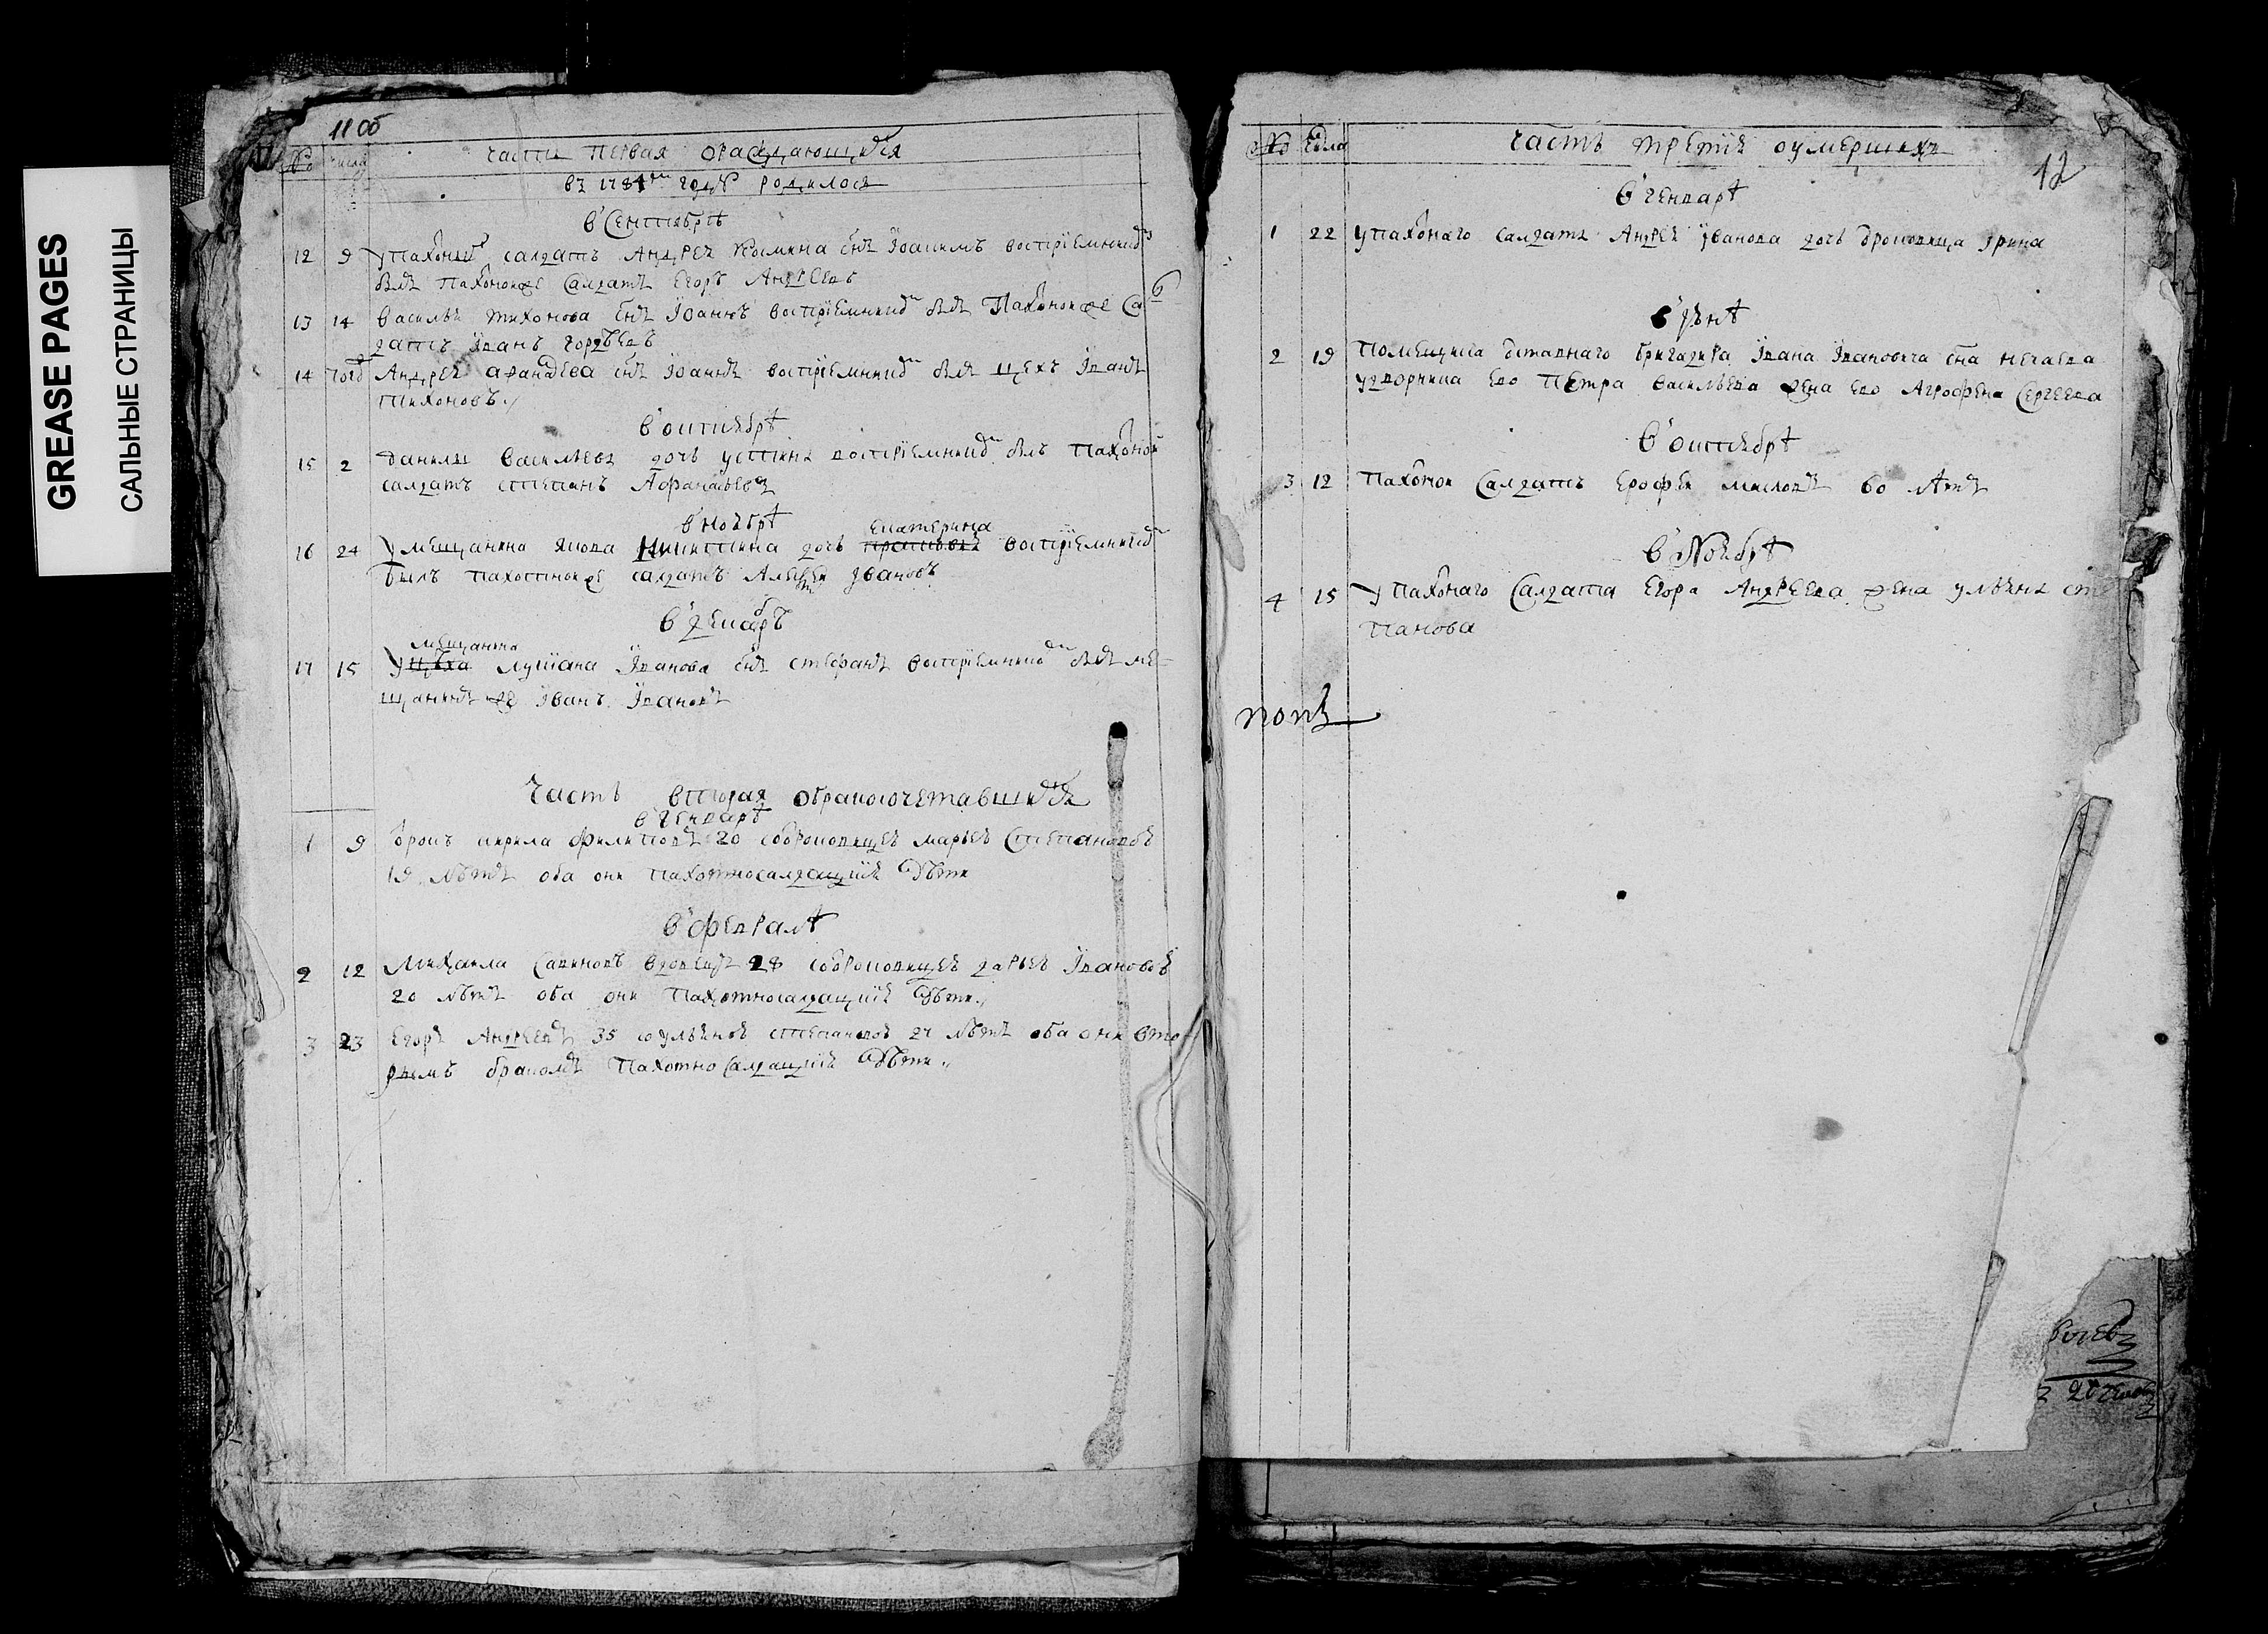 GREASE PAGES
САЛЬНЫЕ СТРАНИЦЫ
11 об
№ числа
часть первая ораждающихся
въ 1784м году родилось
в сентябрѣ
12 9 у пахо салдатъ Андрея сн Іоакимъ восприемником
былъ пахоноиже салдатъ Егоръ Андреевъ
13 14 Василья тихонова снъ Іоаннъ восприемником былъ Пахоноиже Сал
датъ Іванъ Гордѣевъ
14 Андрея афанасева снъ Іоаннъ восприемником былъ цехъ Іванъ
тихоновъ
в октябрѣ
15 2 данилы Васильева дочь устина восприемником былъ Пахоной
салдатъ степанъ Афанасьевъ
в ноябрѣ
Екатерина
16 24 У мещанина якова Никитина дочь восприемником
былъ пахотноиже салдатъ Алексей Івановъ
в декабрѣ
мещанина
17 15 У цѣха лукіана Іванова снъ стефанъ восприемником былъ ме-
щанинъ же Іванъ Івановъ
Часть вторая обракосочетавшихся
в генварѣ
1 9 отрокъ кирила филиповъ 20 соотроковицеѣ марьеѣ Степановоѣ
19 лѣтъ оба они пахотносалдацкія дѣти
в февралѣ
2 12 Михаила Савиновъ вдовецъ 28 соотроковицеѣ дарьеѣ Івановоѣ
20 лѣтъ оба они Пахотносалдацкія дѣти
3 23 Егоръ Андреевъ 35 соульяноѣ степановоѣ 27 лѣтъ оба они вто
рымъ бракомъ Пахотно Салдацкія дѣти
№ Числа
часть третія оумершихъ
12
в генварѣ
1 22 у пахонаго салдата Андрея Іванова дочь отроковица Ірина
в іюнѣ
2 19 Помещика отставнаго бригадира Івана Івановича сна нечаева
у дворника ево Петра Васильева жена ево Агрофена Сергеева
в октябрѣ
3 12 Пахоной Салдатъ Ерофей 60 лѣтъ
в Ноябрѣ
4 15 У Пахонаго Салдата Егора Андреева жена ульяна сте
панова
попъ